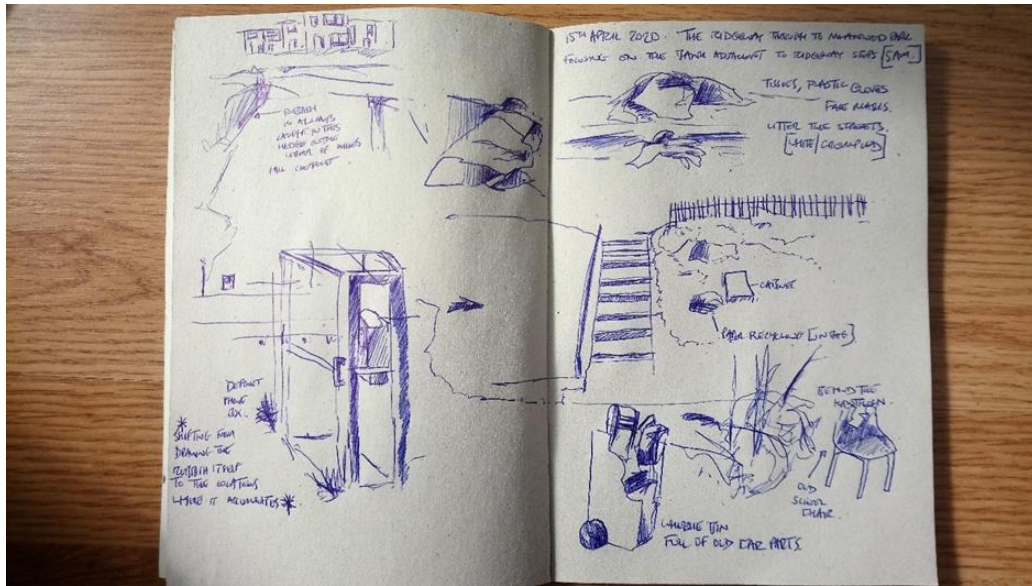 RUBBISH
IS ALWAYS
CAUGHT IN THIS
IN THE
CORNER OF
DEFUNCT
PHONE
BOX.
* SHIFTING FROM
DRAWING THE
RUBBISH ITSELF
TO THE LOCATIONS
WHERE IT ACCUMULATES *
15TH APRIL 2020. THE RIDGEWAY THROUGH TO PARK
FOCUSING ON THE BANK ADJACENT TO RIDGEWAY STEPS [5AM.]
TISSUES, PLASTIC GLOVES
FACE MASKS.
LITTER THE STREETS.
[WHITE/CRUMPLED]
CABINET
PAPER RECYCLING [IN BAG].
BEHIND THE
OLD
SCHOOL
CHAIR.
WHEELIE BIN
FULL OF OLD CAR PARTS.